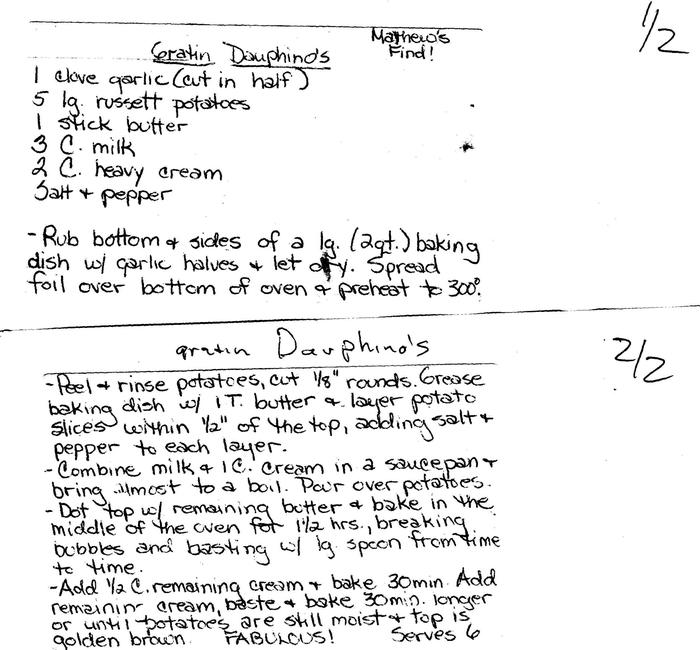 Mathew's
Find!
1/2
Gratin Dauphino's
1 clove garlic (cut in half)
5 lg. russett potatoes
1 stick butter
3 C. milk
2 C. heavy cream
Salt + pepper
-Rub bottom + sides of a lg. (2qt.) baking
dish w/ garlic halves + let dry. Spread
foil over bottom of oven + preheat to 300°.
gratin Dauphino's
2/2
-Peel + rinse potatoes, cut 1/8" rounds. Grease
baking dish w/ 1 T. butter + layer potato
slices within 1/2" of the top, adding salt +
pepper to each layer.
-Combine milk + 1 C. cream in a saucepan +
bring almost to a boil. Pour over potatoes.
-Dot top w/ remaining butter + bake in the
middle of the oven for 1 1/2 hrs., breaking
bubbles and basting w/ lg spoon from time
to time.
-Add 1/2 C. remaining cream + bake 30 min. Add
remaining cream, baste + bake 30 min. longer
or until potatoes are still moist + top is
golden brown. FABULOUS! Serves 6